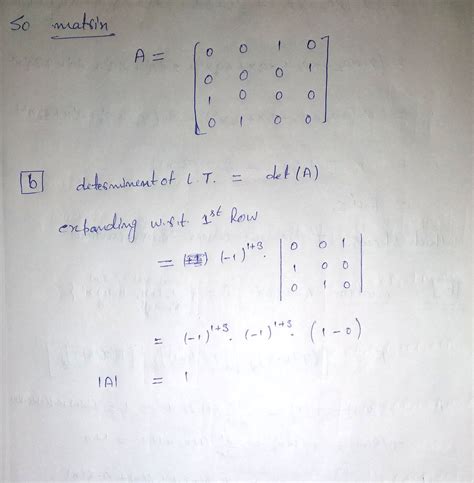 So matrix
A = [ 0 0 1 0
0 0 0 1
1 0 0 0
0 1 0 0 ]
b determinent of L.T. = det (A)
expanding w.r.t. 1st Row
= (-1)^{1+3} . | 0 0 1
1 0 0
0 1 0 |
= (-1)^{1+3} . (-1)^{1+3} . (1 - 0)
|A| = 1